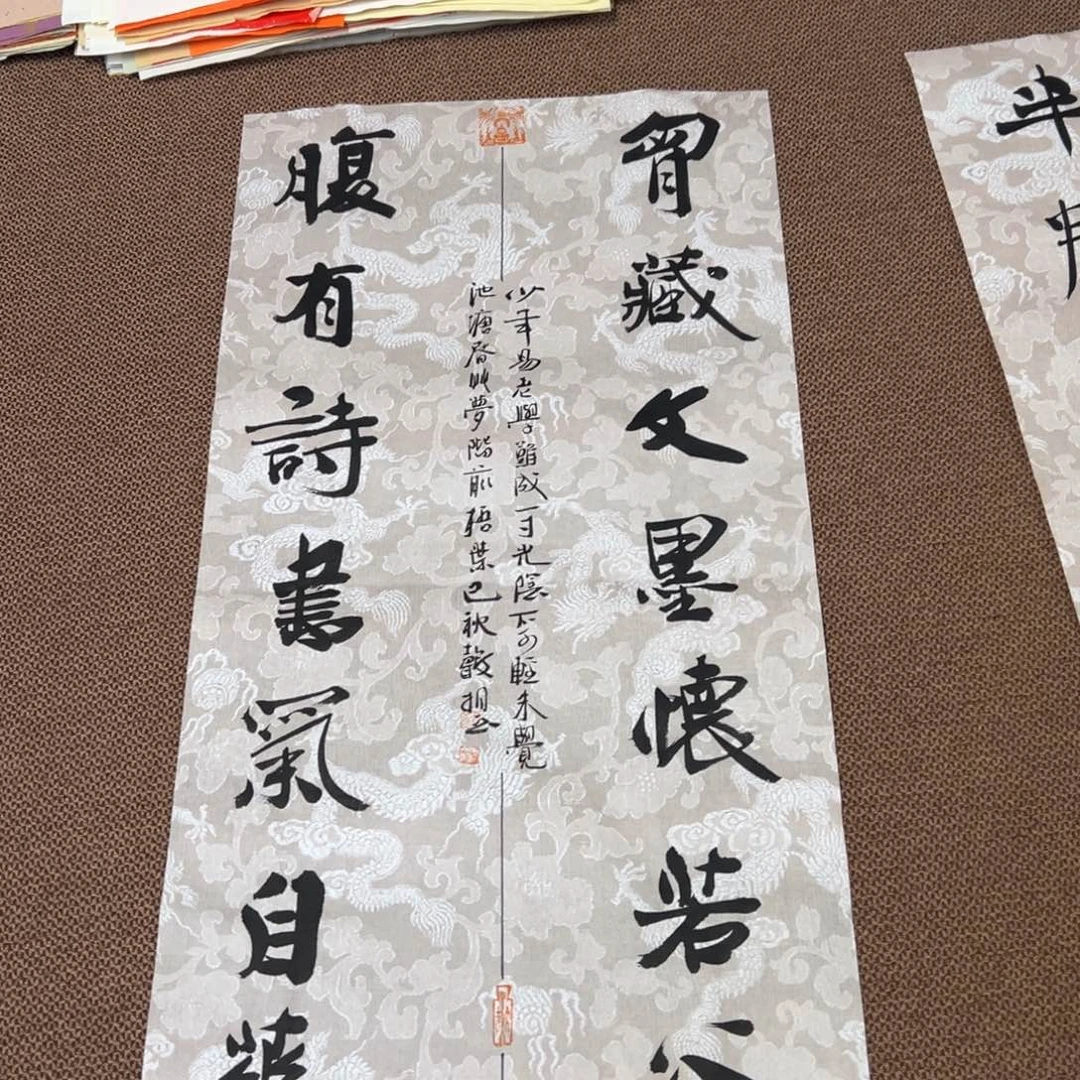 半
胷藏文墨懷若谷
少年易老學難成一寸光陰不可輕未覺
池塘春草夢階前梧葉已秋聲
腹有詩書氣自華